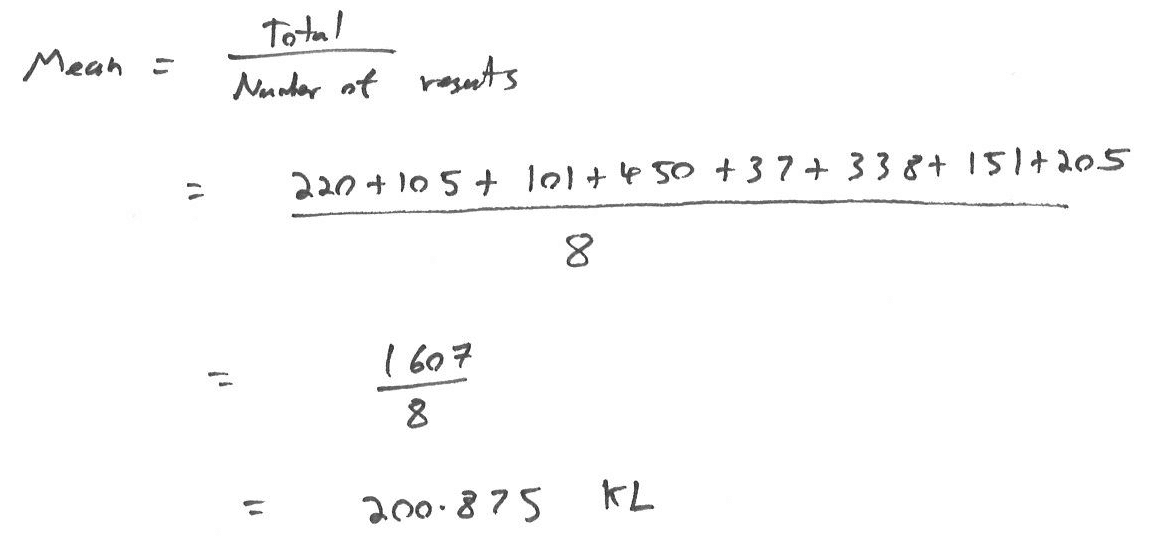 Mean = Total
Number of results
= 220 + 105 + 101 + 450 + 37 + 338 + 151 + 205
8
= 1607
8
= 200.875 KL